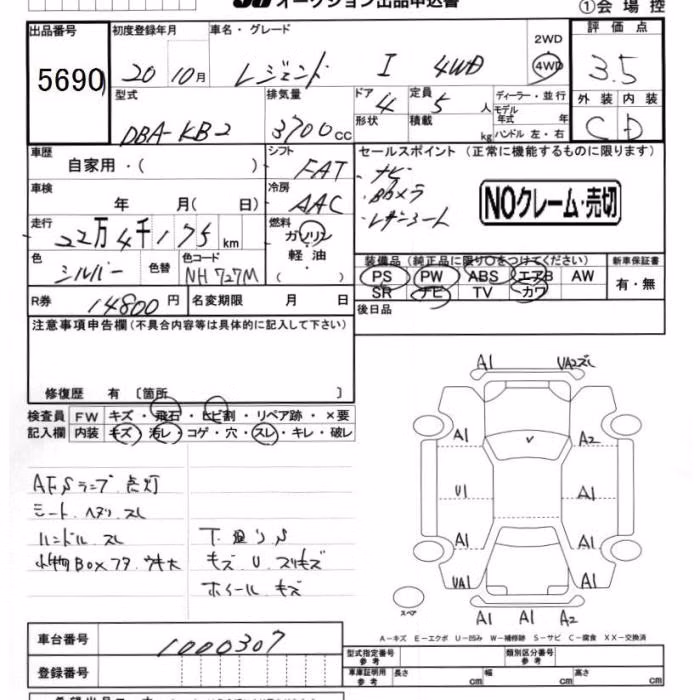 オークション出品申込書
①会場控
出品番号 5690
初度登録年月 20 10月
車名・グレード レジェンド I 4WD
2WD
4WD
評価点 3.5
型式 DBA-KB2
排気量 3700cc
ドア 4
形状
定員 5人
積載 kg
ディーラー・並行
モデル年式 年
ハンドル 左・右
外装 内装
C D
車歴 自家用・( )
シフト FAT
セールスポイント (正常に機能するものに限ります)
・ナビ
・Bカメラ
・レザーシート
NOクレーム・売切
車検 年 月( 日)
冷房 AAC
走行 22万4千175km
燃料 ガソリン
軽油・
( )
色 シルバー 色替
色コード NH727M
装備品(純正品に限り○をつけてください)
PS PW ABS エアB AW
SR ナビ TV カワ
新車保証書
有・無
R券 14800円
名変期限 月 日
後日品
注意事項申告欄(不具合内容等は具体的に記入して下さい)
修復歴 有 〔箇所 〕
検査員 FW キズ・飛石・ヒビ割・リペア跡・×要
記入欄 内装 キズ・汚レ・コゲ・穴・スレ・キレ・破レ
AFSランプ点灯
シート ヘタリ スレ
ハンドル スレ
小物Boxフタ ウキ大
キズ U スリキズ
ホイール キズ
A1 UA2ズレ
A1 V A2
U1 A1
A1 A1
UA1 A1
スペア
A1 A1 A2
A-キズ E-エクボ U-凹み W-補修跡 S-サビ C-腐食 XX-交換済
車台番号 1000307
登録番号
型式指定番号 参考
類別区分番号 参考
車庫証明用 参考 長さ cm 幅 cm 高さ cm